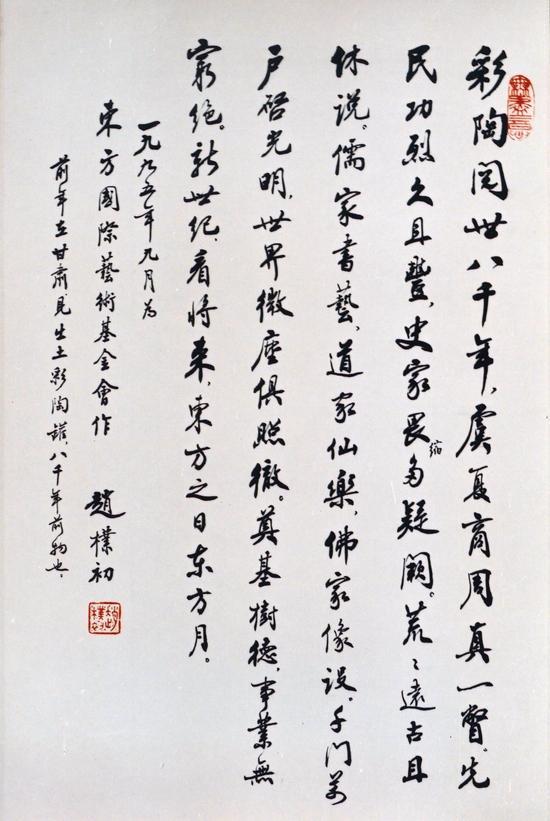 彩陶閱世八千年，虞夏商周真一瞥。先
民功烈久且豐，史家畏縮多疑闕。荒々遠古且
休说。儒家書藝，道家仙樂，佛家像设。千门万
户啓光明，世界微塵俱照徹。奠基樹德，事業無
窮绝。新世纪，看将来，東方之日东方月。
一九九五年九月为
東方國際藝術基金會作　趙樸初
前年在甘肅見出土彩陶罐，八千年前物也。
無盡意
趙樸初